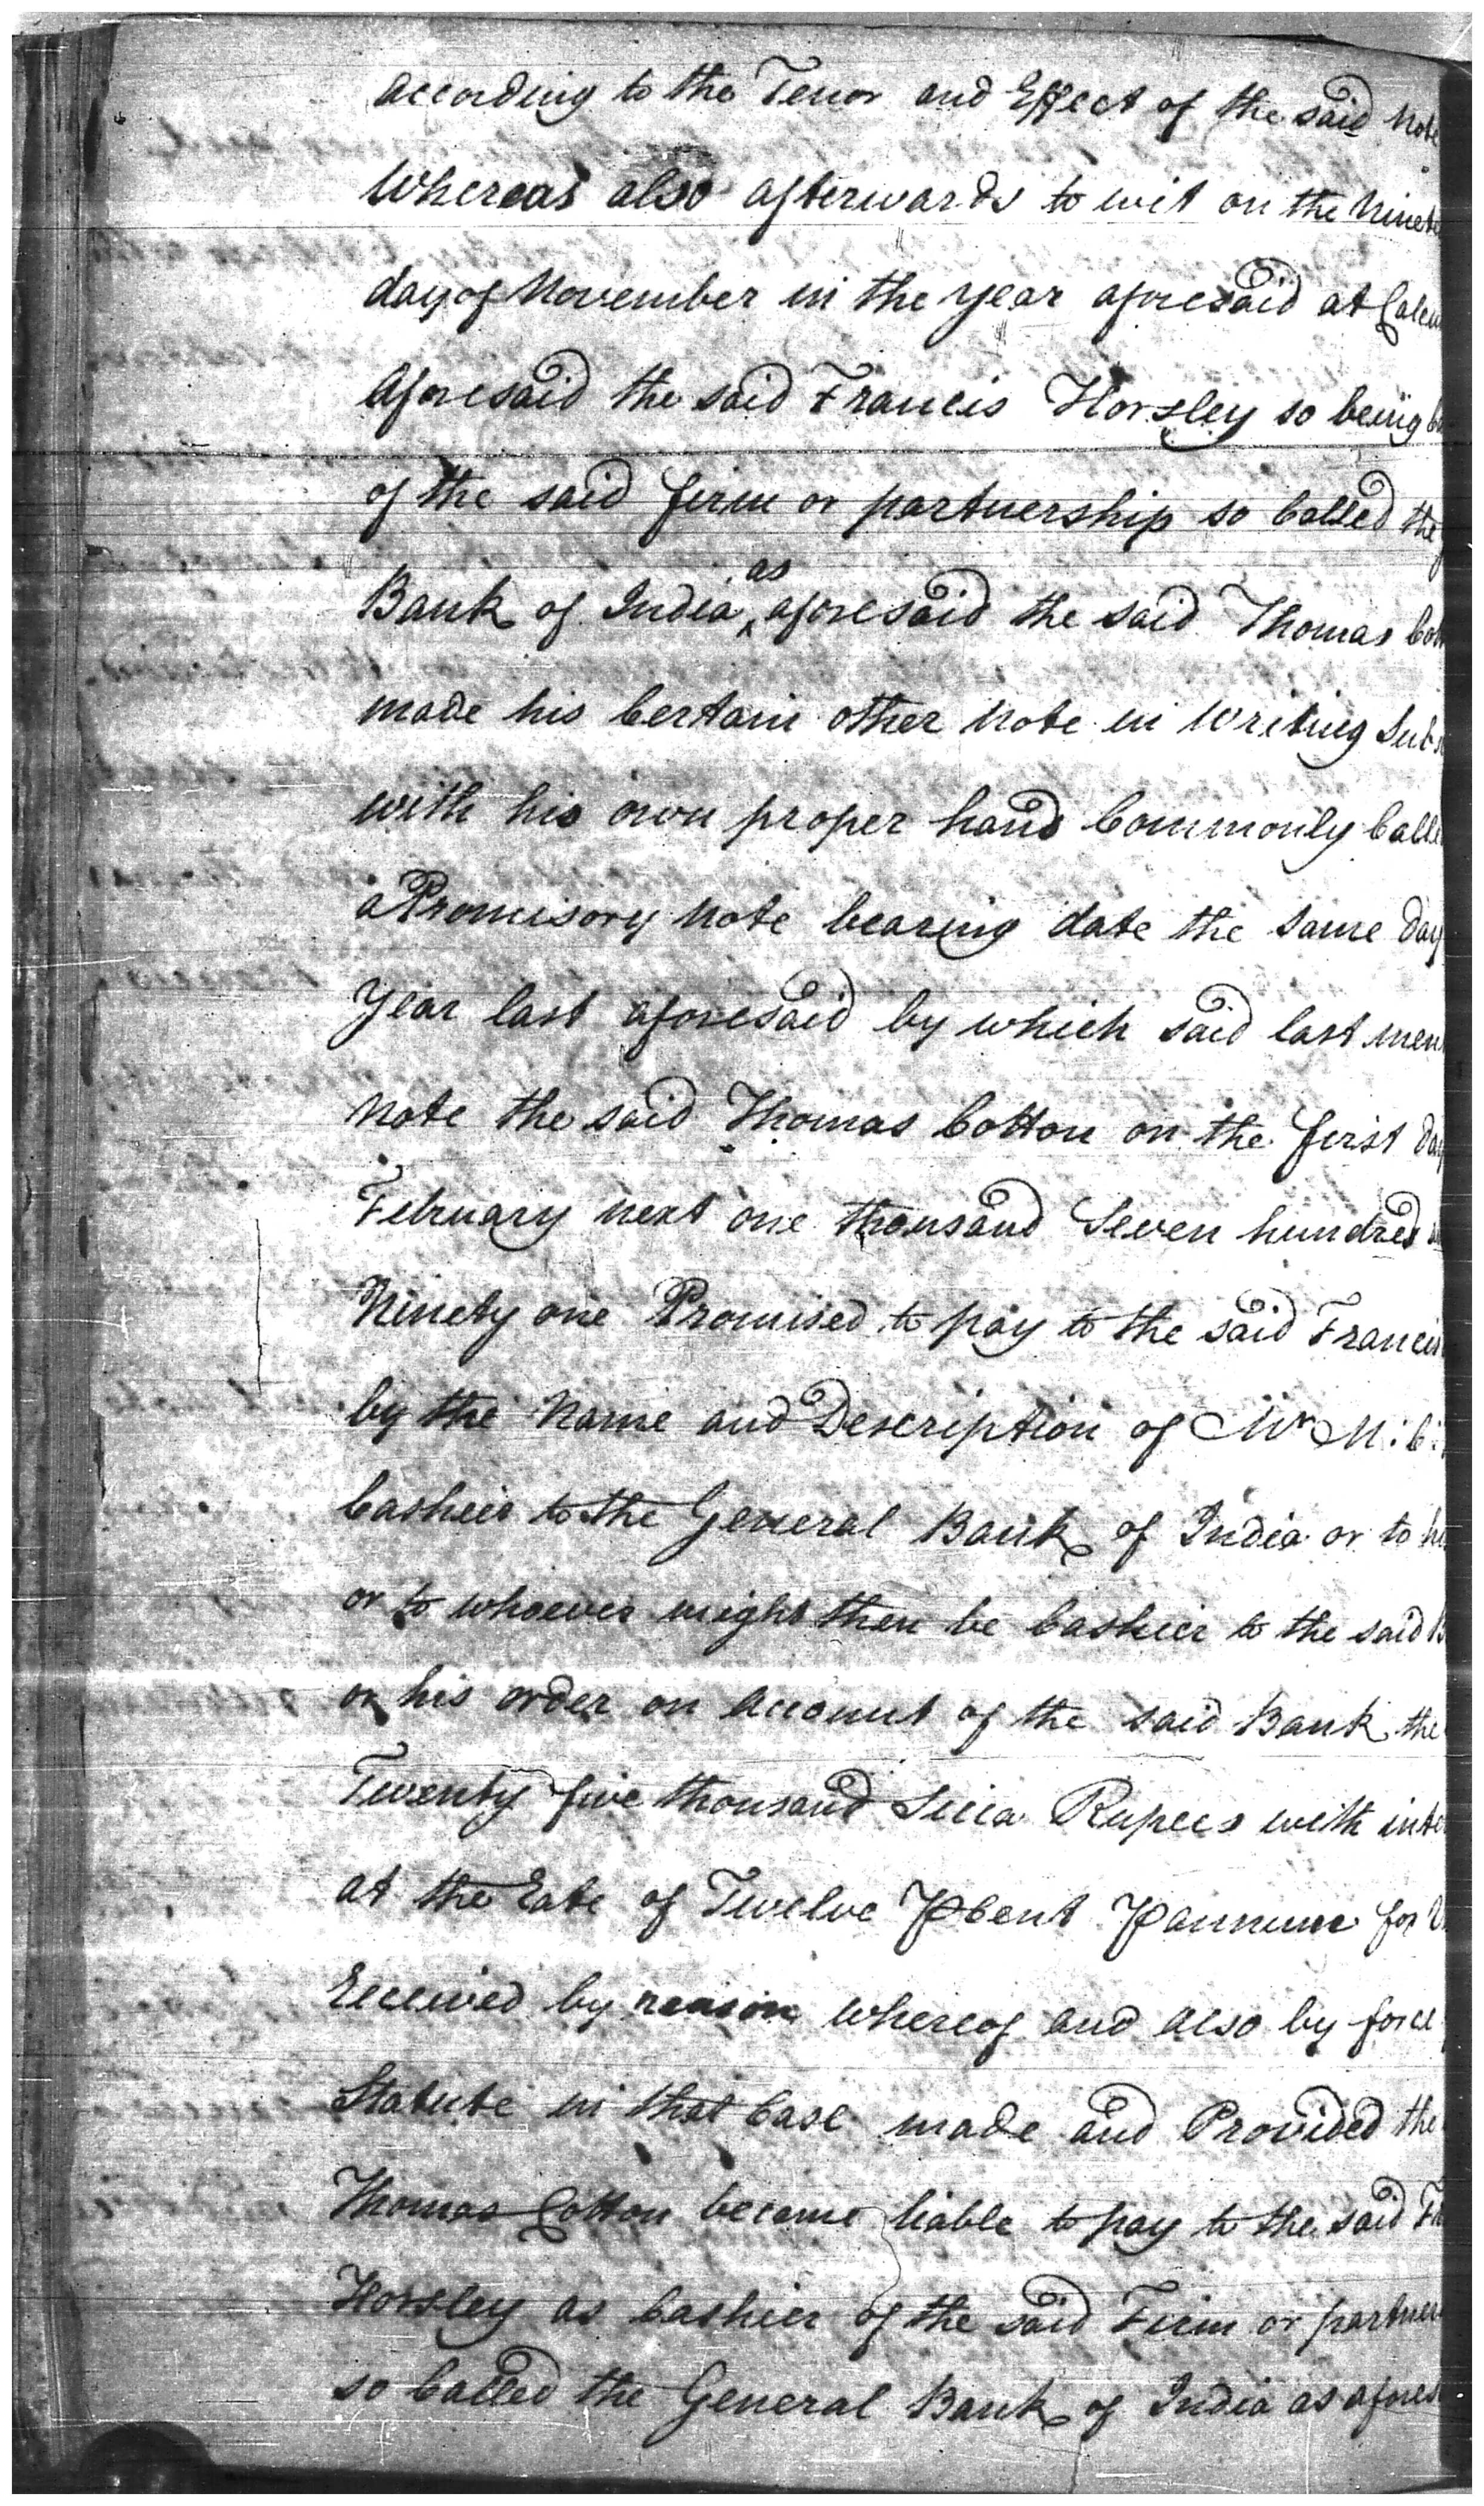 according to the Tenor and Effect of the said Note
Whereas also afterwards to wit on the Ninet
day of November in the year aforesaid at Calcu
Aforesaid the said Francis Horsley so being
of the said firm or partnership so Called the
Bank of India as aforesaid the said Thomas Cot
made his Certain other Note in Writing Subs
with his own proper hand Commonly Calle
a Promisory Note bearing date the same day
Year last aforesaid by which said last men
Note the said Thomas Cotton on the first day
February next one thousand Seven hundred
Ninety one Promised to pay to the said Francis
by the Name and Description of Mr M: C:
Casheir to the General Bank of India or to hi
or to whoever might then be Cashier to the said B
or his order on Account of the said Bank the
Twenty five thousand Sicca Rupees with inte
at the Rate of Twelve ⅌ Cent ⅌ annum for V
Received by reason whereof and also by force
Statute in that Case made and Provided the
Thomas Cotton became liable to pay to the said Fra
Horsley as Cashier of the said Firm or partner
so Called the General Bank of India as afores